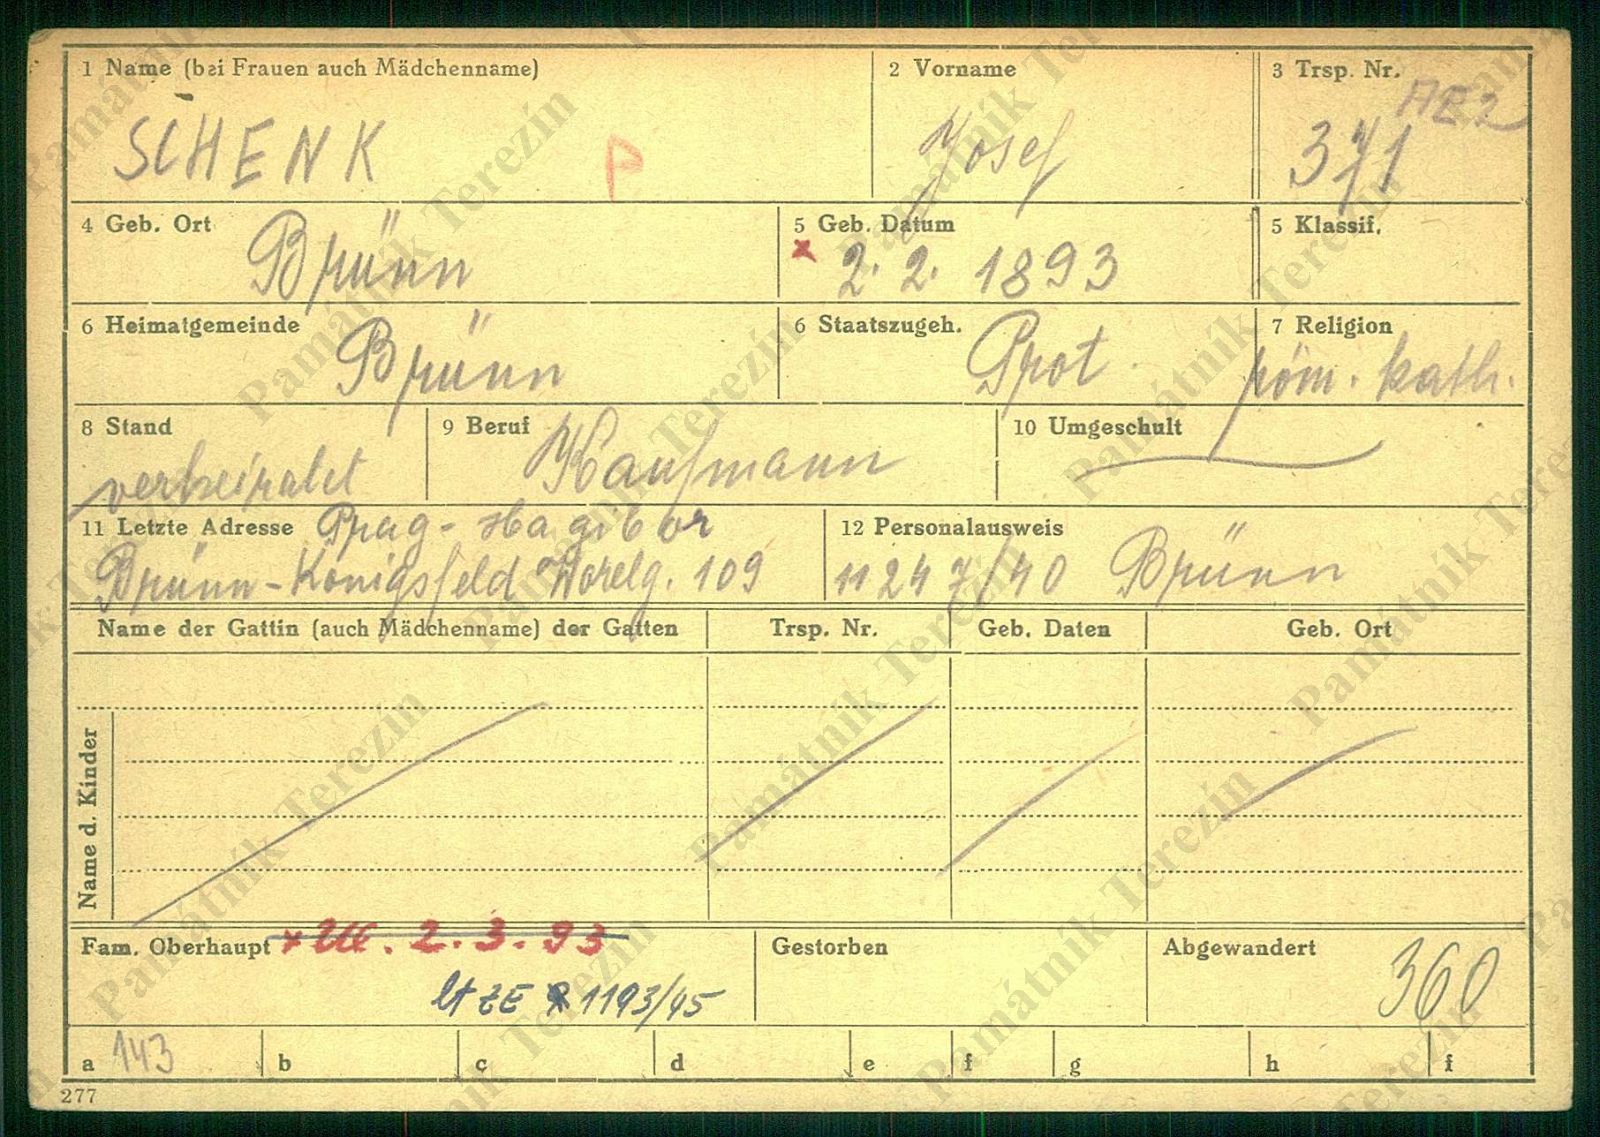 1 Name (bei Frauen auch Mädchenname)
SCHENK
P
2 Vorname
Josef
3 Trsp. Nr.
AE2
371
4 Geb. Ort
Brünn
5 Geb. Datum
x 2. 2. 1893
5 Klassif.
6 Heimatgemeinde
Brünn
6 Staatszugeh.
Prot.
7 Religion
röm. kath.
8 Stand
verheiratet
9 Beruf
Kaufmann
10 Umgeschult
11 Letzte Adresse Prag - Hagibor
Brünn - Königsfeld 109
12 Personalausweis
11247/40 Brünn
Name der Gattin (auch Mädchenname) der Gatten
Trsp. Nr.
Geb. Daten
Geb. Ort
Name d. Kinder
Fam. Oberhaupt x 2. 3. 93
lt ZE 1193/45
Gestorben
Abgewandert
360
a 143
b
c
d
e
f
g
h
f
277
Památník Terezín